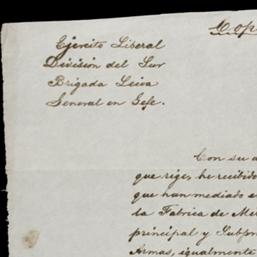 Copi
Ejercito Liberal
Division del Sur
Brigada Leiva
General en Gefe.
Con su a
que rige, he recibido
que han mediado e
la Fabrica de Me
principal y Subpr
Armas, igualmente